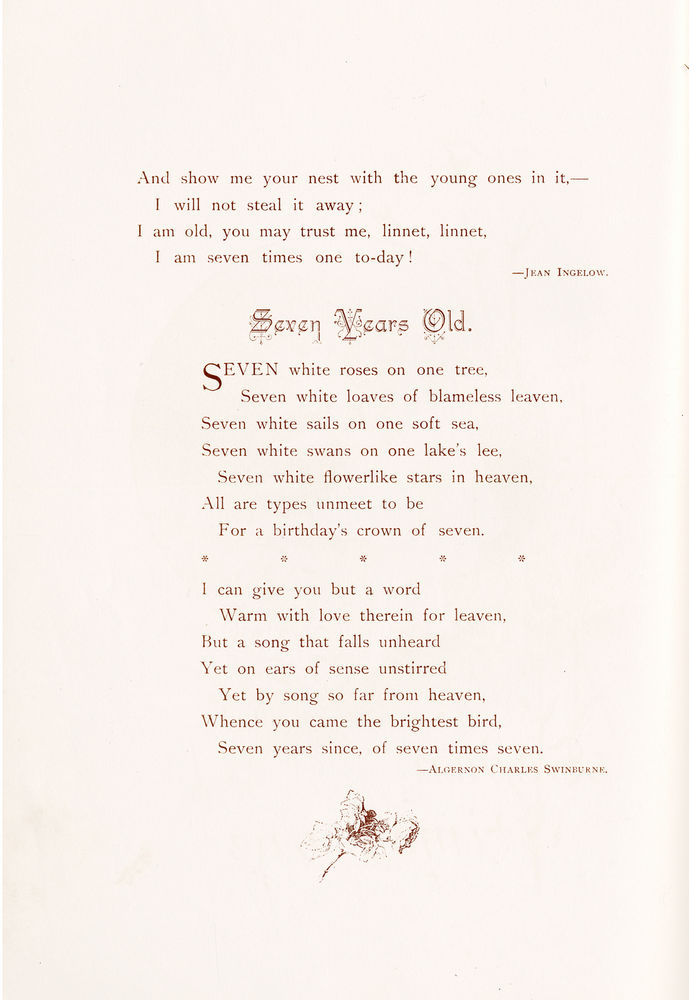 And show me your nest with the young ones in it,—
I will not steal it away;
I am old, you may trust me, linnet, linnet,
I am seven times one to-day!
—Jean Ingelow.
Seven Years Old.
SEVEN white roses on one tree,
Seven white loaves of blameless leaven,
Seven white sails on one soft sea,
Seven white swans on one lake's lee,
Seven white flowerlike stars in heaven,
All are types unmeet to be
For a birthday's crown of seven.
* * * * *
I can give you but a word
Warm with love therein for leaven,
But a song that falls unheard
Yet on ears of sense unstirred
Yet by song so far from heaven,
Whence you came the brightest bird,
Seven years since, of seven times seven.
—Algernon Charles Swinburne.